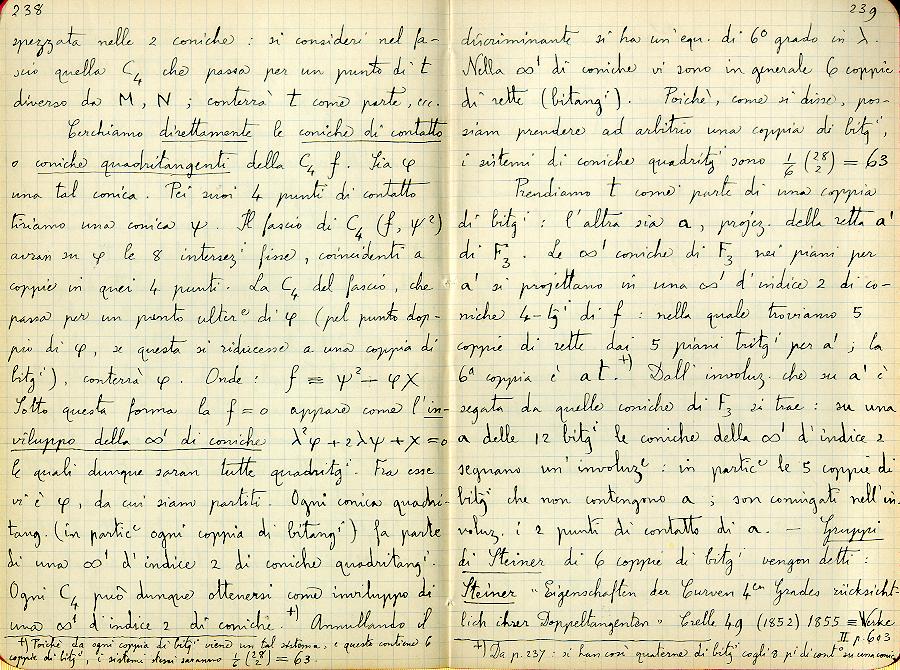 238
spezzata nelle 2 coniche : si consideri nel fa-
scio quella C₄ che passa per un punto di t
diverso da M, N ; conterrà t come parte, ecc.
Cerchiamo direttamente le coniche di contatto
o coniche quadritangenti della C₄ f. Sia φ
una tal conica. Pei suoi 4 punti di contatto
tiriamo una conica ψ. Il fascio di C₄ (f, ψ²)
avran su φ le 8 intersezⁱ fisse, coincidenti a
coppie in quei 4 punti. La C₄ del fascio, che
passa per un punto ulterᵉ di φ (pel punto dop-
pio di φ, se questa si riducesse a una coppia di
bitgⁱ), conterrà φ. Onde : f ≡ ψ² − φχ
Sotto questa forma la f=0 appare come l'in-
viluppo della ∞¹ di coniche λ²φ + 2λψ + χ = 0
le quali dunque saran tutte quadritgⁱ. Fra esse
vi è φ, da cui siam partiti. Ogni conica quadri-
tang. (in particᵉ ogni coppia di bitangⁱ) fa parte
di una ∞¹ d'indice 2 di coniche quadritangⁱ.
Ogni C₄ può dunque ottenersi come inviluppo di
una ∞¹ d'indice 2 di coniche.⁺⁾ Annullando il
+) Poichè da ogni coppia di bitgⁱ viene un tal sistema, e questo contiene 6
coppie di bitgⁱ, i sistemi stessi saranno 1/6 (28 2) = 63.
239
discriminante si ha un'equ. di 6º grado in λ.
Nella ∞¹ di coniche vi sono in generale 6 coppie
di rette (bitangⁱ). Poichè, come si disse, pos-
siam prendere ad arbitrio una coppia di bitgⁱ,
i sistemi di coniche quadritgⁱ sono 1/6 (28 2) = 63
Prendiamo t come parte di una coppia
di bitgⁱ : l'altra sia a, projez. della retta a'
di F₃. Le ∞¹ coniche di F₃ nei piani per
a' si projettano in una ∞¹ d'indice 2 di co-
niche 4-tgⁱ di f : nella quale troviamo 5
coppie di rette dai 5 piani tritgⁱ per a' ; la
6ª coppia è at.⁺⁾ Dall'involuz. che su a' è
segata da quelle coniche di F₃ si trae : su una
a delle 12 bitgⁱ le coniche della ∞¹ d'indice 2
segnano un'involuzᵉ : in particᵉ le 5 coppie di
bitgⁱ che non contengono a ; son coniugati nell'in-
voluz. i 2 punti di contatto di a. — Gruppi
di Steiner di 6 coppie di bitgⁱ vengon detti :
Steiner "Eigenschaften der Curven 4ᵗᵉⁿ Grades rücksicht-
lich ihrer Doppeltangenten" Crelle 49 (1852) 1855 = Werke
II p. 603
+) Da p. 237 : si han così quaterne di bitgⁱ cogli 8 pⁱ di contᵒ su una conica